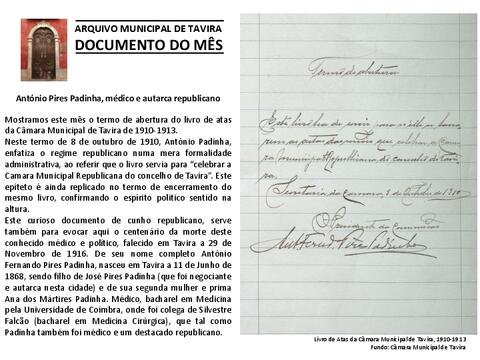 ARQUIVO MUNICIPAL DE TAVIRA
DOCUMENTO DO MÊS
António Pires Padinha, médico e autarca republicano
Mostramos este mês o termo de abertura do livro de atas
da Câmara Municipal de Tavira de 1910-1913.
Neste termo de 8 de outubro de 1910, António Padinha,
enfatiza o regime republicano numa mera formalidade
administrativa, ao referir que o livro servia para “celebrar a
Camara Municipal Republicana do concelho de Tavira”. Este
epíteto é ainda replicado no termo de encerramento do
mesmo livro, confirmando o espírito político sentido na
altura.
Este curioso documento de cunho republicano, serve
também para evocar aqui o centenário da morte deste
conhecido médico e político, falecido em Tavira a 29 de
Novembro de 1916. De seu nome completo António
Fernando Pires Padinha, nasceu em Tavira a 11 de Junho de
1868, sendo filho de José Pires Padinha (que foi negociante
e autarca nesta cidade) e de sua segunda mulher e prima
Ana dos Mártires Padinha. Médico, bacharel em Medicina
pela Universidade de Coimbra, onde foi colega de Silvestre
Falcão (bacharel em Medicina Cirúrgica), que tal como
Padinha também foi médico e um destacado republicano.
Termo de abertura
Este livro ha de servir para n'elle se lavra-
rem as actas das sessões que celebrar a Cama-
ra Municipal Republicana do concelho de Tavi-
ra.
Secretaria da Camara, 8 de Outubro de 1910
O Presidente da Commissão
Ant. Fernd. Pires Padinha
Livro de Atas da Câmara Municipal de Tavira, 1910-1913
Fundo: Câmara Municipal de Tavira